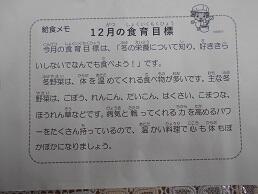 給食メモ
12月の食育目標
今月の食育目標は、「冬の栄養について知り、好ききら
いしないでなんでも食べよう!」です。
冬野菜は、体を温めてくれる食べ物が多いです。主な冬
野菜は、ごぼう、れんこん、だいこん、はくさい、こまつな、
ほうれん草などです。病気と戦ってくれる力を高めるパワ
ーをたくさん持っているので、温かい料理で心も体もぽ
かぽかになりましょう。